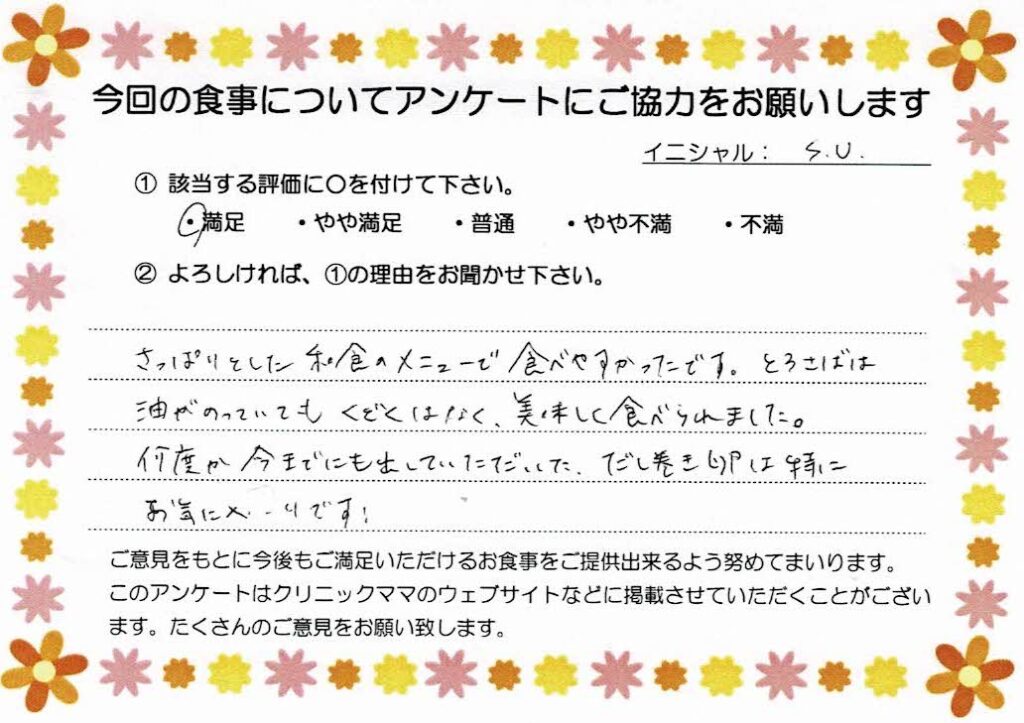 今回の食事についてアンケートにご協力をお願いします
イニシャル： S.U.
① 該当する評価に〇を付けて下さい。
・満足 ・やや満足 ・普通 ・やや不満 ・不満
② よろしければ、①の理由をお聞かせ下さい。
さっぱりとした和食のメニューで食べやすかったです。とろさばは
油がのっていてもくどくはなく、美味しく食べられました。
何度か今までにも出していただいた、だし巻き卵は特に
お気に入りです！
ご意見をもとに今後もご満足いただけるお食事をご提供出来るよう努めてまいります。
このアンケートはクリニックママのウェブサイトなどに掲載させていただくことがござい
ます。たくさんのご意見をお願い致します。